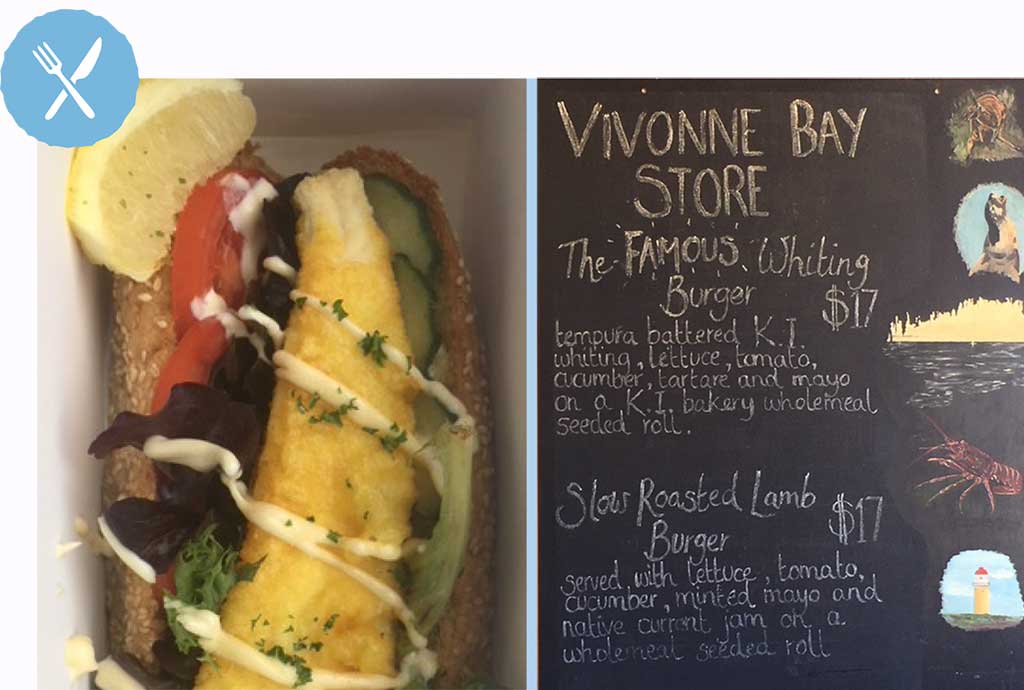 VIVONNE BAY
STORE
The FAMOUS Whiting
Burger $17
tempura battered K.I.
whiting, lettuce, tomato,
cucumber, tartare and mayo
on a K.I. bakery wholemeal
seeded roll.
Slow Roasted Lamb
Burger $17
served with lettuce, tomato,
cucumber, minted mayo and
native currant jam on a
wholemeal seeded roll